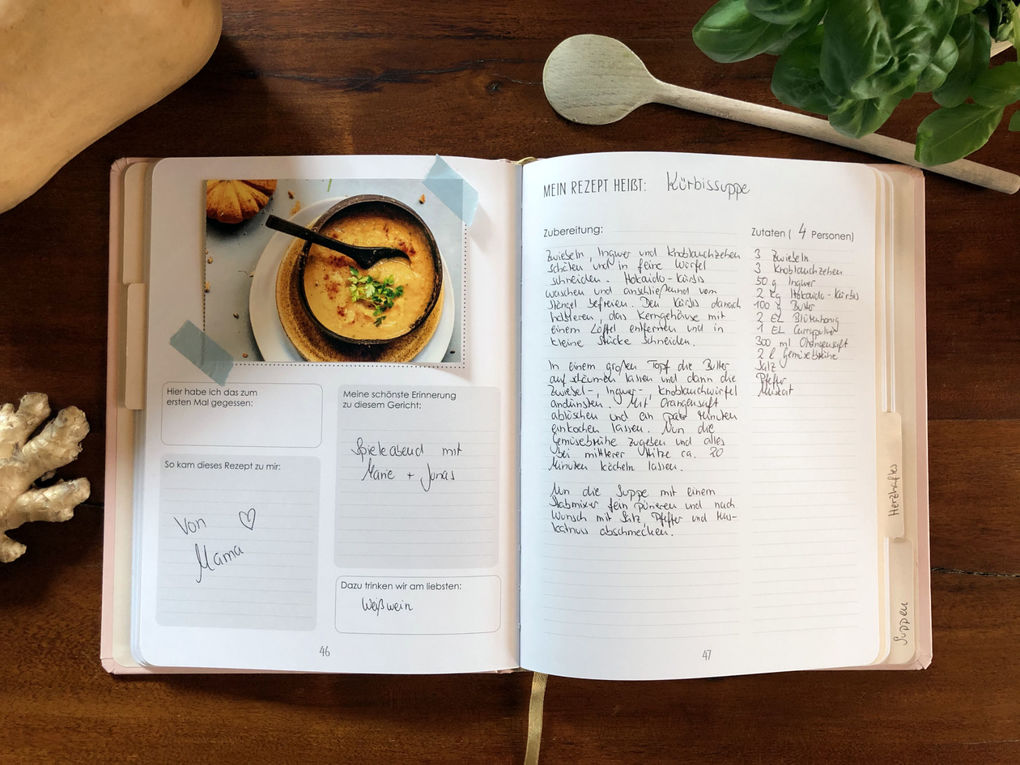 Hier habe ich das zum
ersten Mal gegessen:
So kam dieses Rezept zu mir:
Von ♡
Mama
Meine schönste Erinnerung
zu diesem Gericht:
Spieleabend mit
Marie + Jonas
Dazu trinken wir am liebsten:
Weißwein
46
MEIN REZEPT HEIẞT: Kürbissuppe
Zubereitung:
Zwiebeln, Ingwer und Knoblauchzehen
schälen und in feine Würfel
schneiden. Hokaido-Kürbis
waschen und anschließend vom
Stengel befreien. Den Kürbis danach
halbieren, das Kerngehäuse mit
einem Löffel entfernen und in
kleine Stücke schneiden.
In einem großen Topf die Butter
aufschäumen lassen und dann die
Zwiebel-, Ingwer-, Knoblauchwürfel
andünsten. Mit Orangensaft
ablöschen und ein paar Minuten
einkochen lassen. Nun die
Gemüsebrühe zugeben und alles
bei mittlerer Hitze ca. 20
Minuten köcheln lassen.
Nun die Suppe mit einem
Stabmixer fein pürieren und nach
Wunsch mit Salz, Pfeffer und Mus-
katnuss abschmecken.
Zutaten ( 4 Personen)
3 Zwiebeln
3 Knoblauchzehen
50 g Ingwer
2 kg Hokaido-Kürbis
100 g Butter
2 EL Blütenhonig
1 EL Currypulver
300 ml Orangensaft
2 l Gemüsebrühe
Salz
Pfeffer
Muskat
47
Herzhaftes
Suppen